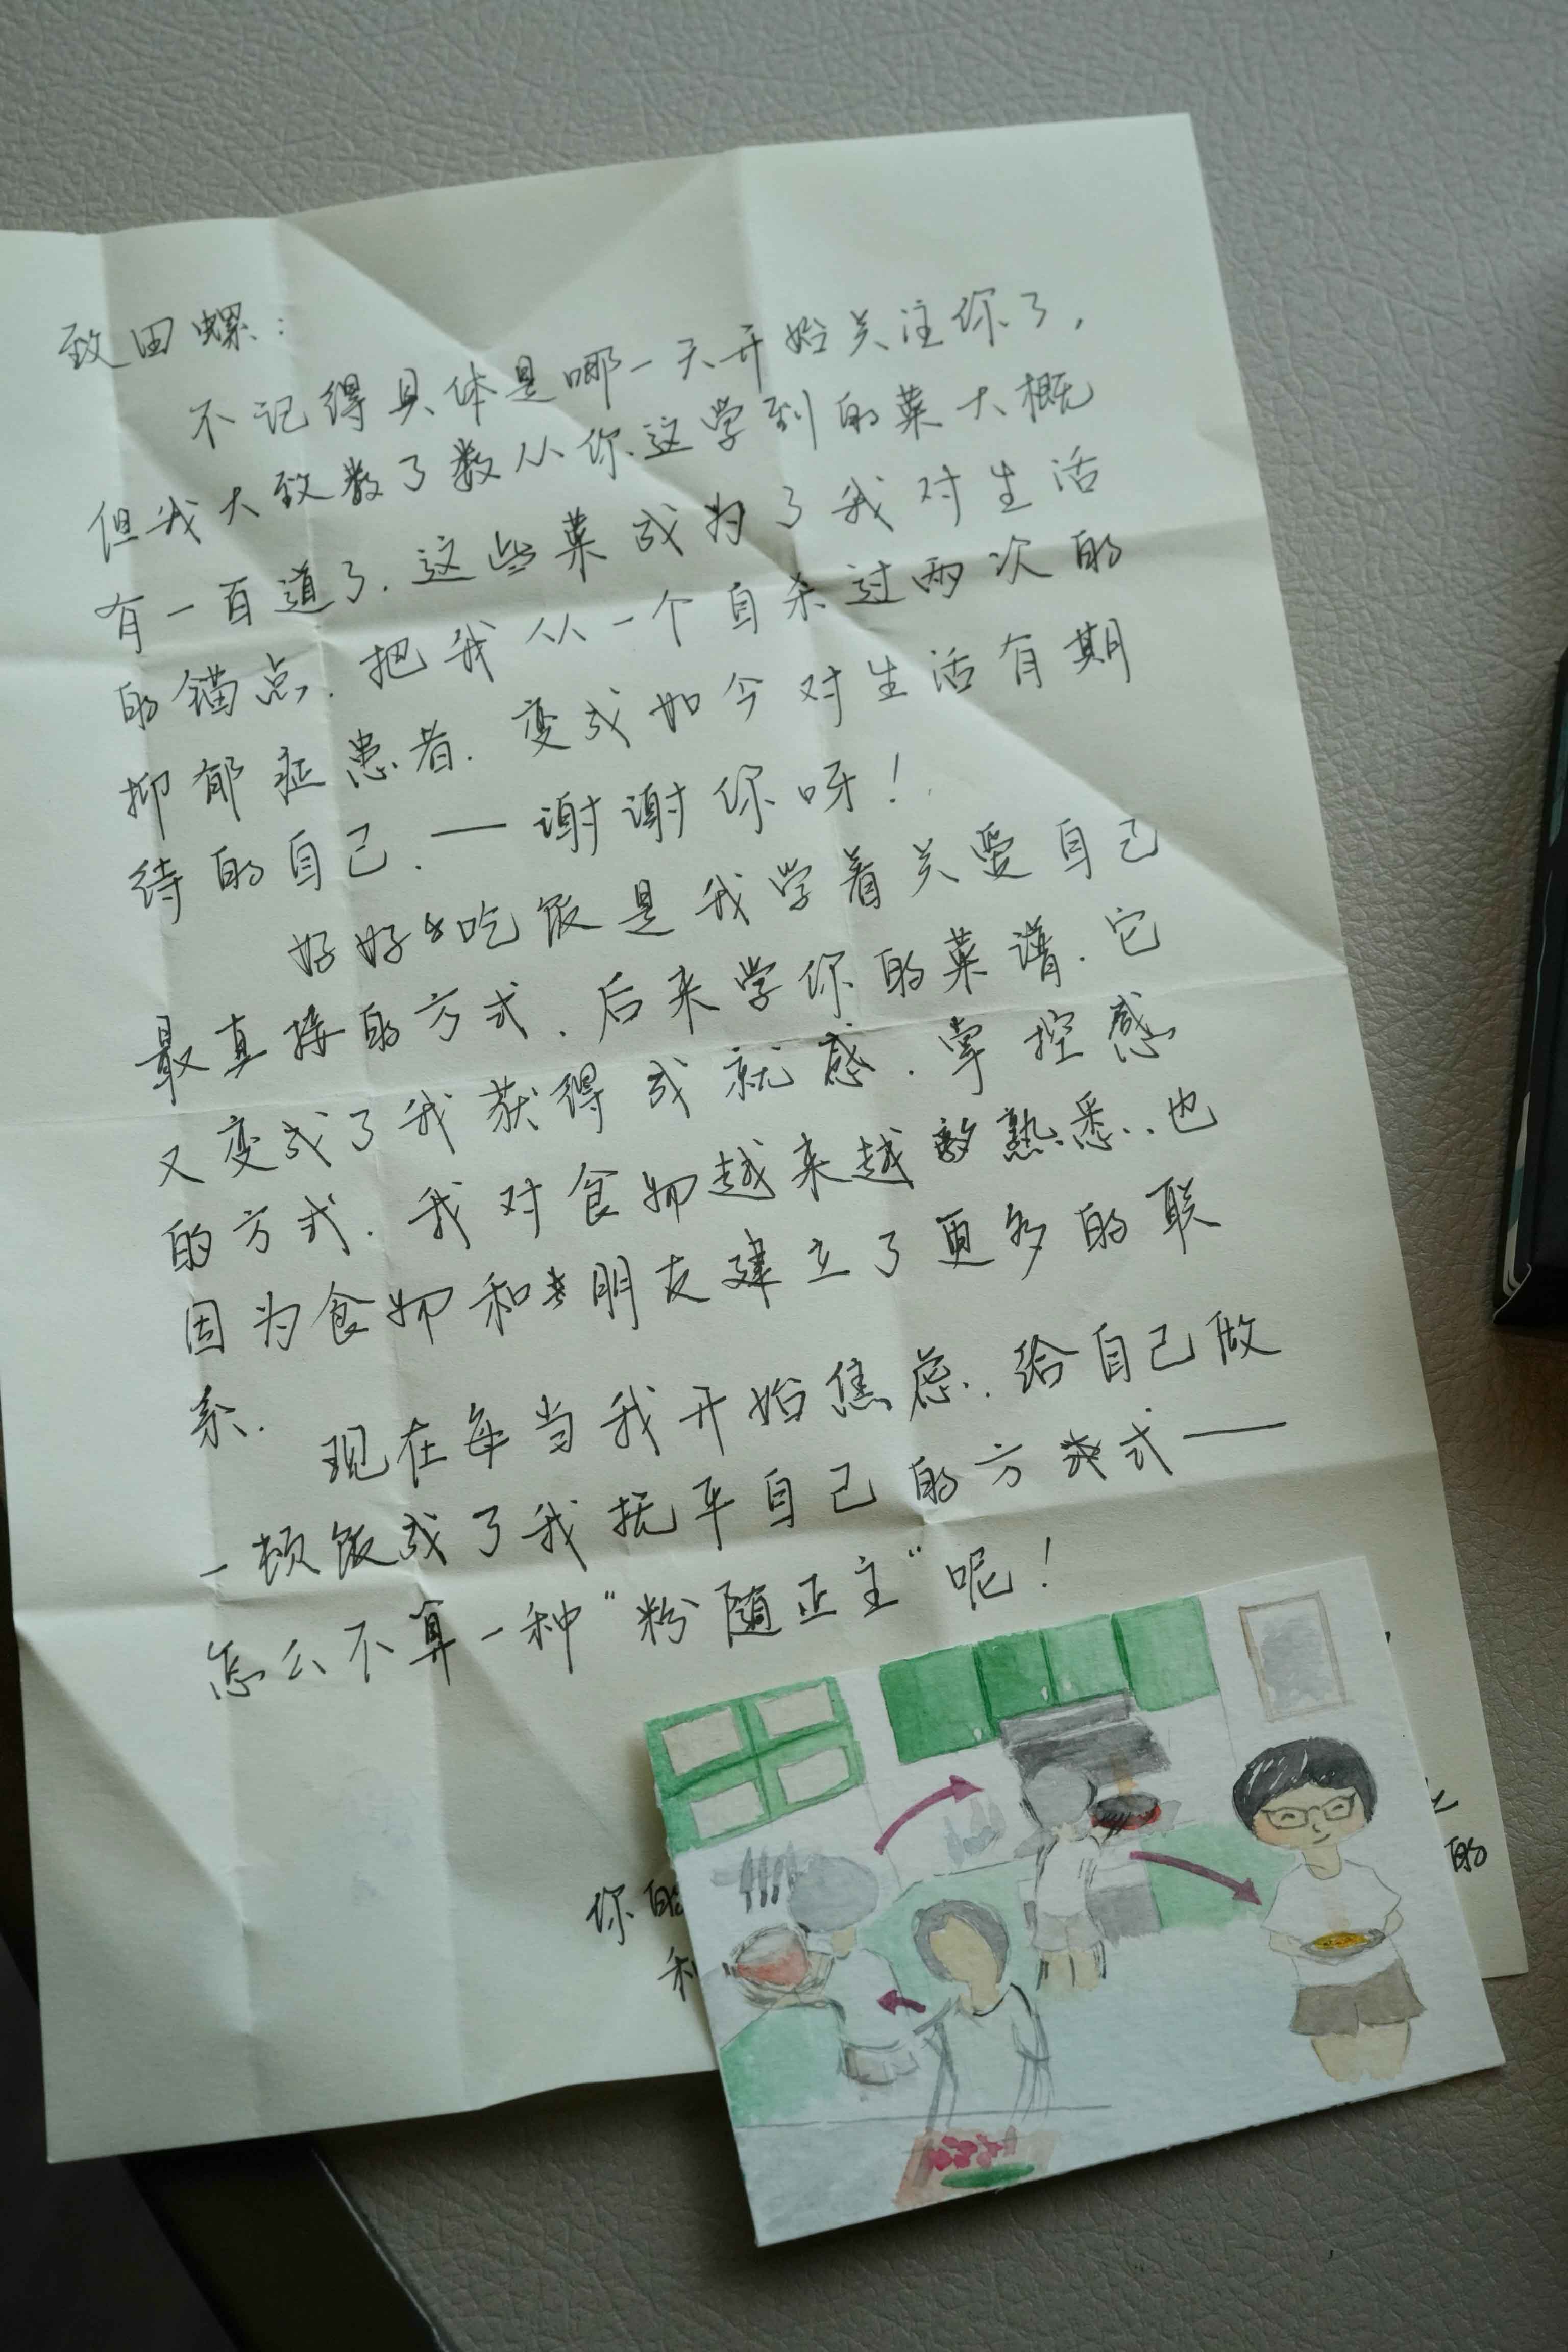 致田螺：
不记得具体是哪一天开始关注你了，
但我大致数了数从你这学到的菜大概
有一百道了.这些菜成为了我对生活
的锚点.把我从一个自杀过两次的
抑郁症患者.变成如今对生活有期
待的自己.——谢谢你呀！
好好吃饭是我学着关爱自己
最直接的方式.后来学你的菜谱.它
又变成了我获得成就感.掌控感
的方式.我对食物越来越熟悉.也
因为食物和朋友建立了更多的联
系.
现在每当我开始焦虑.给自己做
一顿饭成了我抚平自己的方式——
怎么不算一种“粉随正主”呢！
你的
的